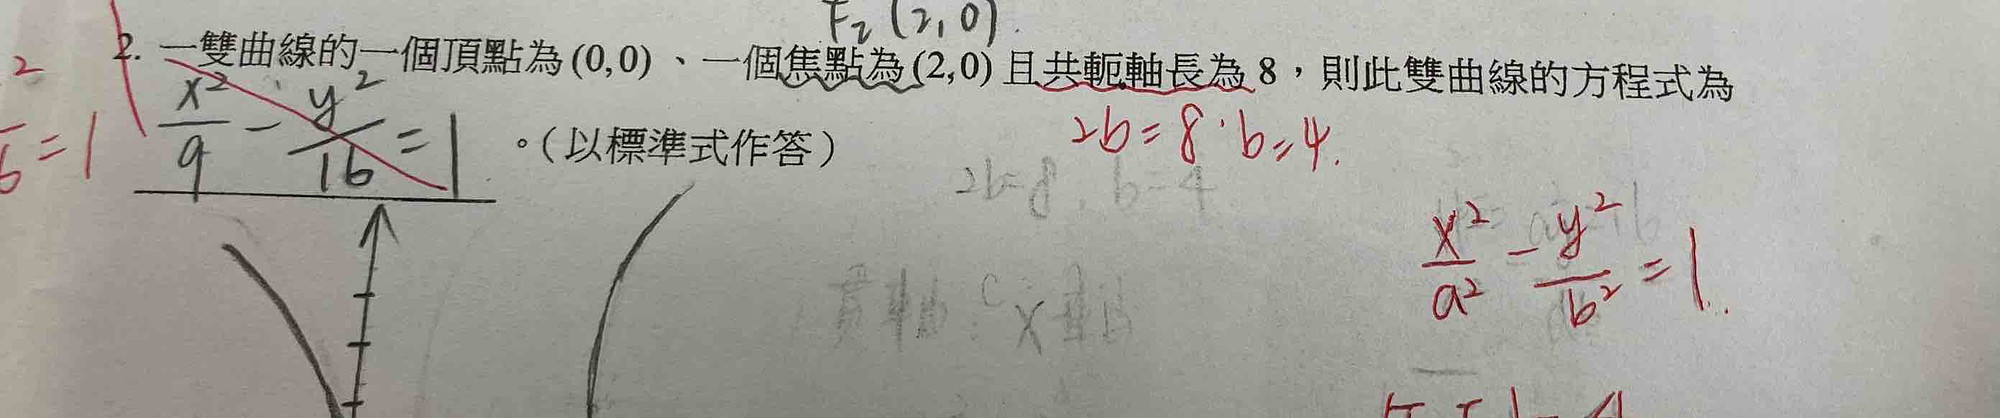 F₂(2,0)
2. 一雙曲線的一個頂點為(0,0)、一個焦點為(2,0)且共軛軸長為8,則此雙曲線的方程式為
x²/9 - y²/16 = 1 。(以標準式作答)
2b=8, b=4.
2b=8, b=4
x²/a² - y²/b² = 1.
=1